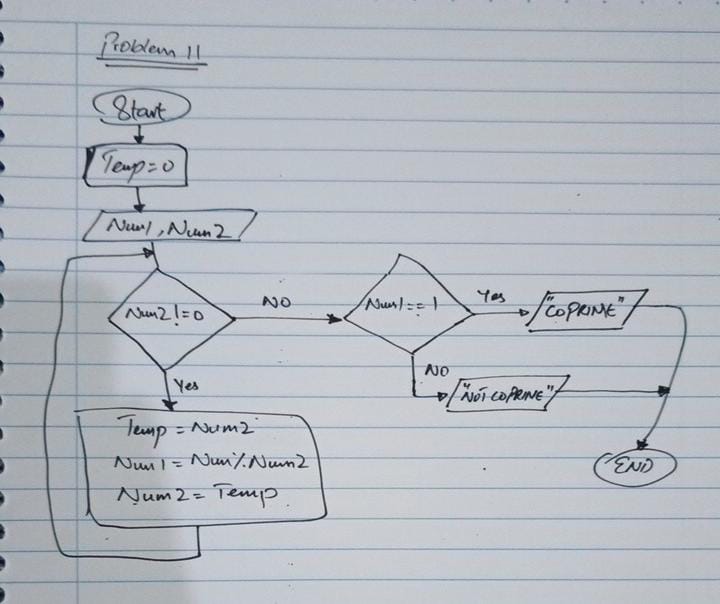 Problem 11
Start
Temp=0
Num1, Num2
Num2!=0
NO
Num1==1
Yes
"COPRIME"
NO
"NOT COPRINE"
Yes
Temp = Num2
Num1 = Num%Num2
Num2 = Temp
END